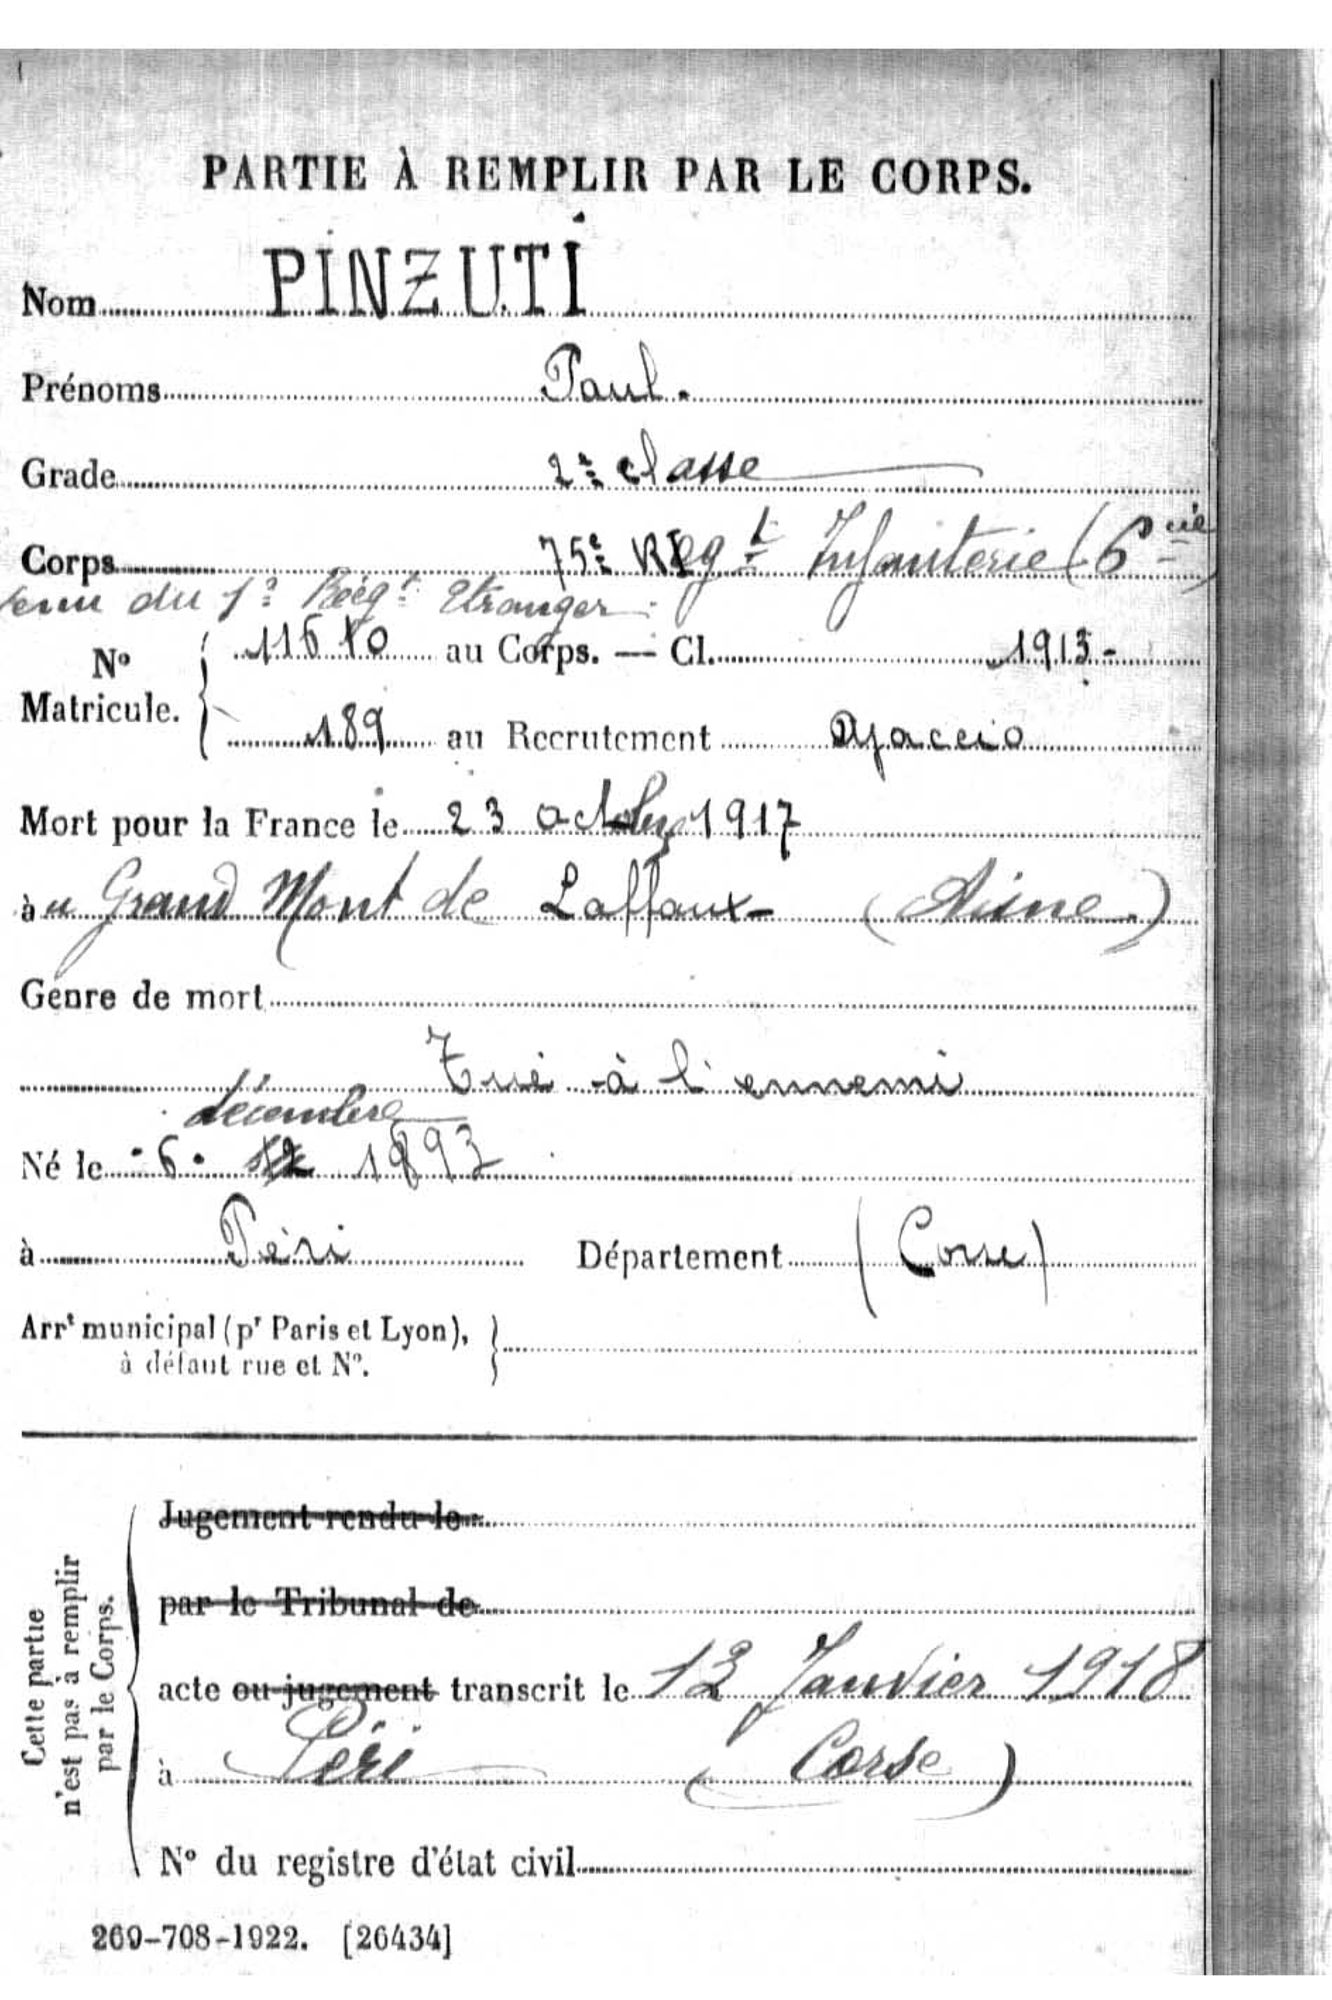 PARTIE À REMPLIR PAR LE CORPS.
Nom PINZUTI
Prénoms Paul.
Grade 2e classe
Corps 75e Régt Infanterie (6 cie)
venu du 1er Régt Etranger
No Matricule. 11610 au Corps. — Cl. 1913-
189 au Recrutement Ajaccio
Mort pour la France le 23 octobre 1917
au Grand Mont de Laffaux- (Aisne)
Genre de mort
Tué à l'ennemi
décembre
Né le 6. 12 1893
à Péri Département (Corse)
Arrt municipal (pr Paris et Lyon),
à défaut rue et No.
Cette partie
n'est pas à remplir
par le Corps.
Jugement rendu le
par le Tribunal de
acte ou jugement transcrit le 13 Janvier 1918
à Péri (Corse)
No du registre d'état civil
269-708-1922. [26434]